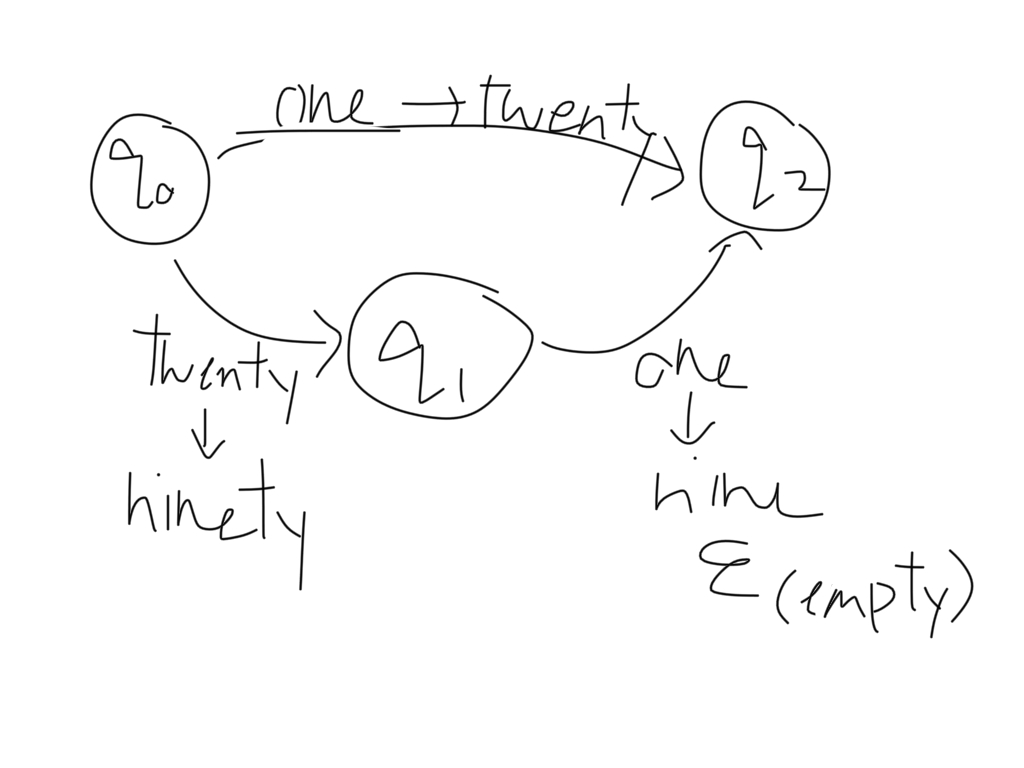 one → twenty
q0
q2
q1
twenty
↓
ninety
one
↓
nine
ε (empty)